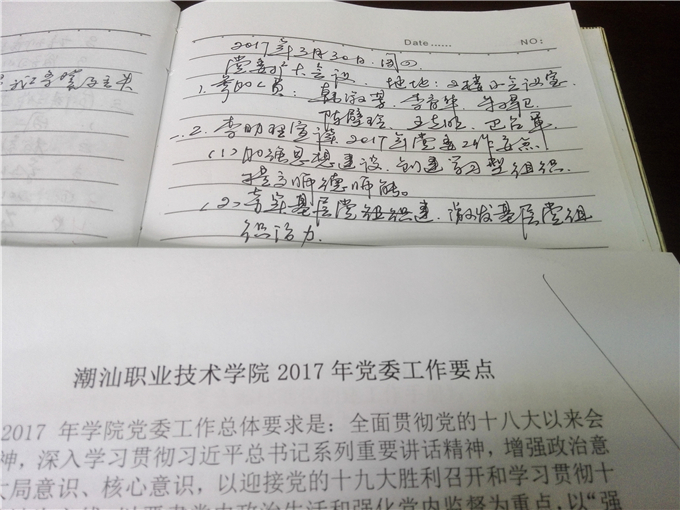 Date...... NO:
2017年3月30日.周四
党委扩大会议. 地地:2楼小会议室
1.参加人员:
2.李助理宣读2017年党委工作要点
(1)加强思想建设,创建学习型组织.
提高师德师能。
(2)夯实基层党组织建,激发基层党组
织活力.
潮汕职业技术学院 2017 年党委工作要点
2017 年学院党委工作总体要求是:全面贯彻党的十八大以来会
神,深入学习贯彻习近平总书记系列重要讲话精神,增强政治意
大局意识、核心意识,以迎接党的十九大胜利召开和学习贯彻十
党内政治生活和强化党内监督为重点,以“强